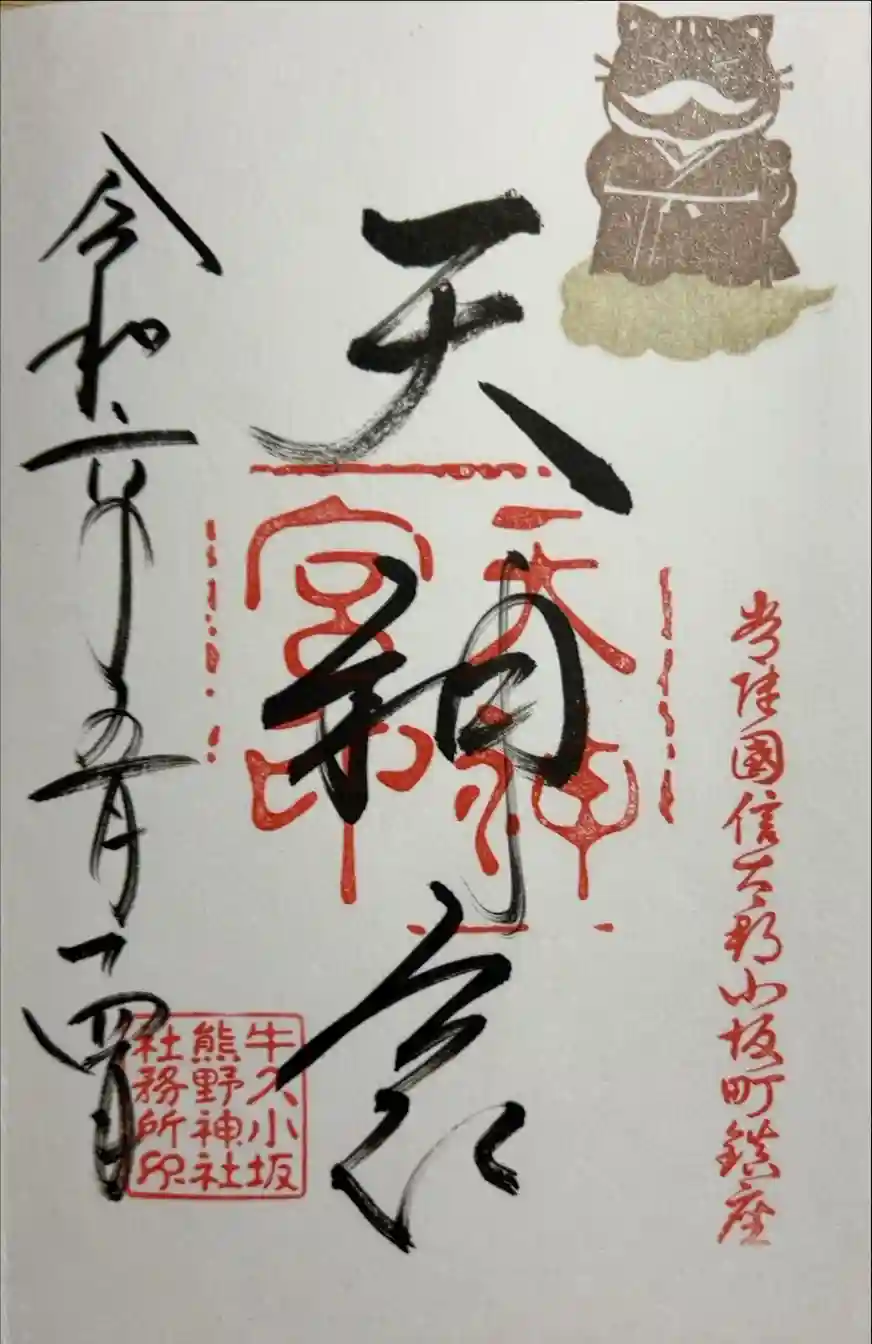 常陸國信太郡小坂町鎮座
天神宮
天神宮印
令和六年五月一四日
牛久小坂
熊野神社
社務所印